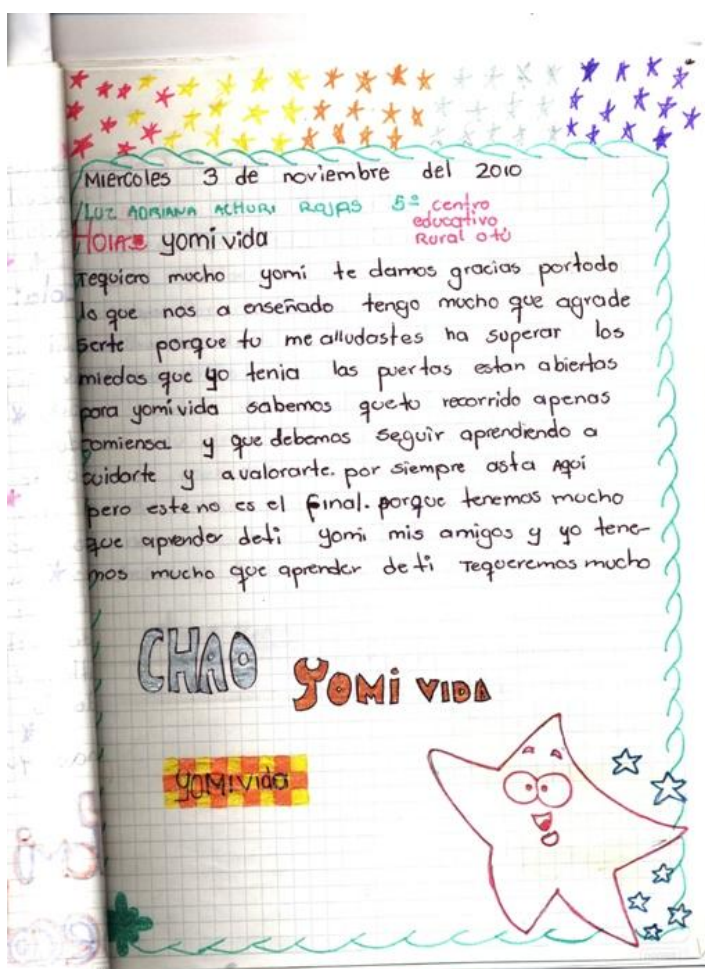 Miercoles 3 de noviembre del 2010
LUZ ADRIANA ACHURI ROJAS 5º centro
educativo
Rural otú
Hola yomi vida
Tequiero mucho yomi te damos gracias portodo
lo que nos a enseñado tengo mucho que agrade
serte porque tu me alludastes ha superar los
miedos que yo tenia las puertas estan abiertas
para yomivida sabemos quetu recorrido apenas
comiensa y que debemos seguir aprendiendo a
cuidarte y avalorarte. por siempre asta Aqui
pero este no es el final. porque tenemos mucho
que aprender deti yomi mis amigos y yo tene-
mos mucho que aprender de ti Tequeremos mucho
CHAO YOMI VIDA
YOMIVIDA